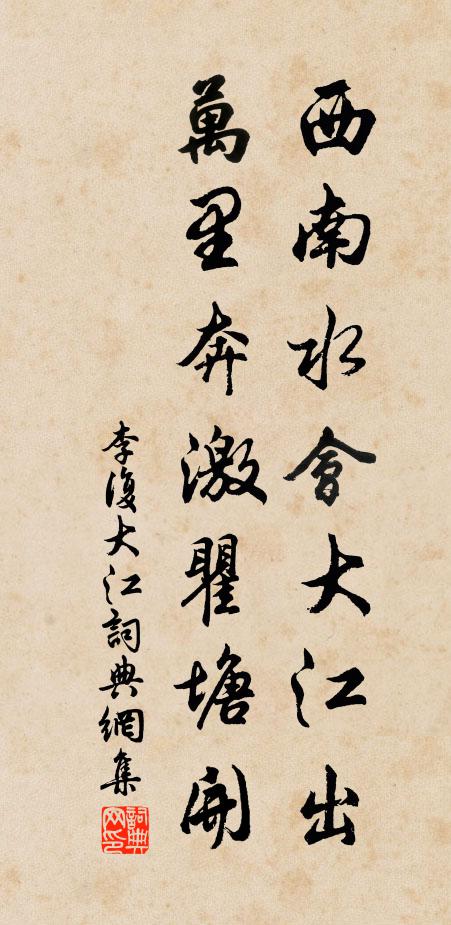 西南水會大江出
萬里奔激瞿塘開
李復大江詞典網集
詞典网印